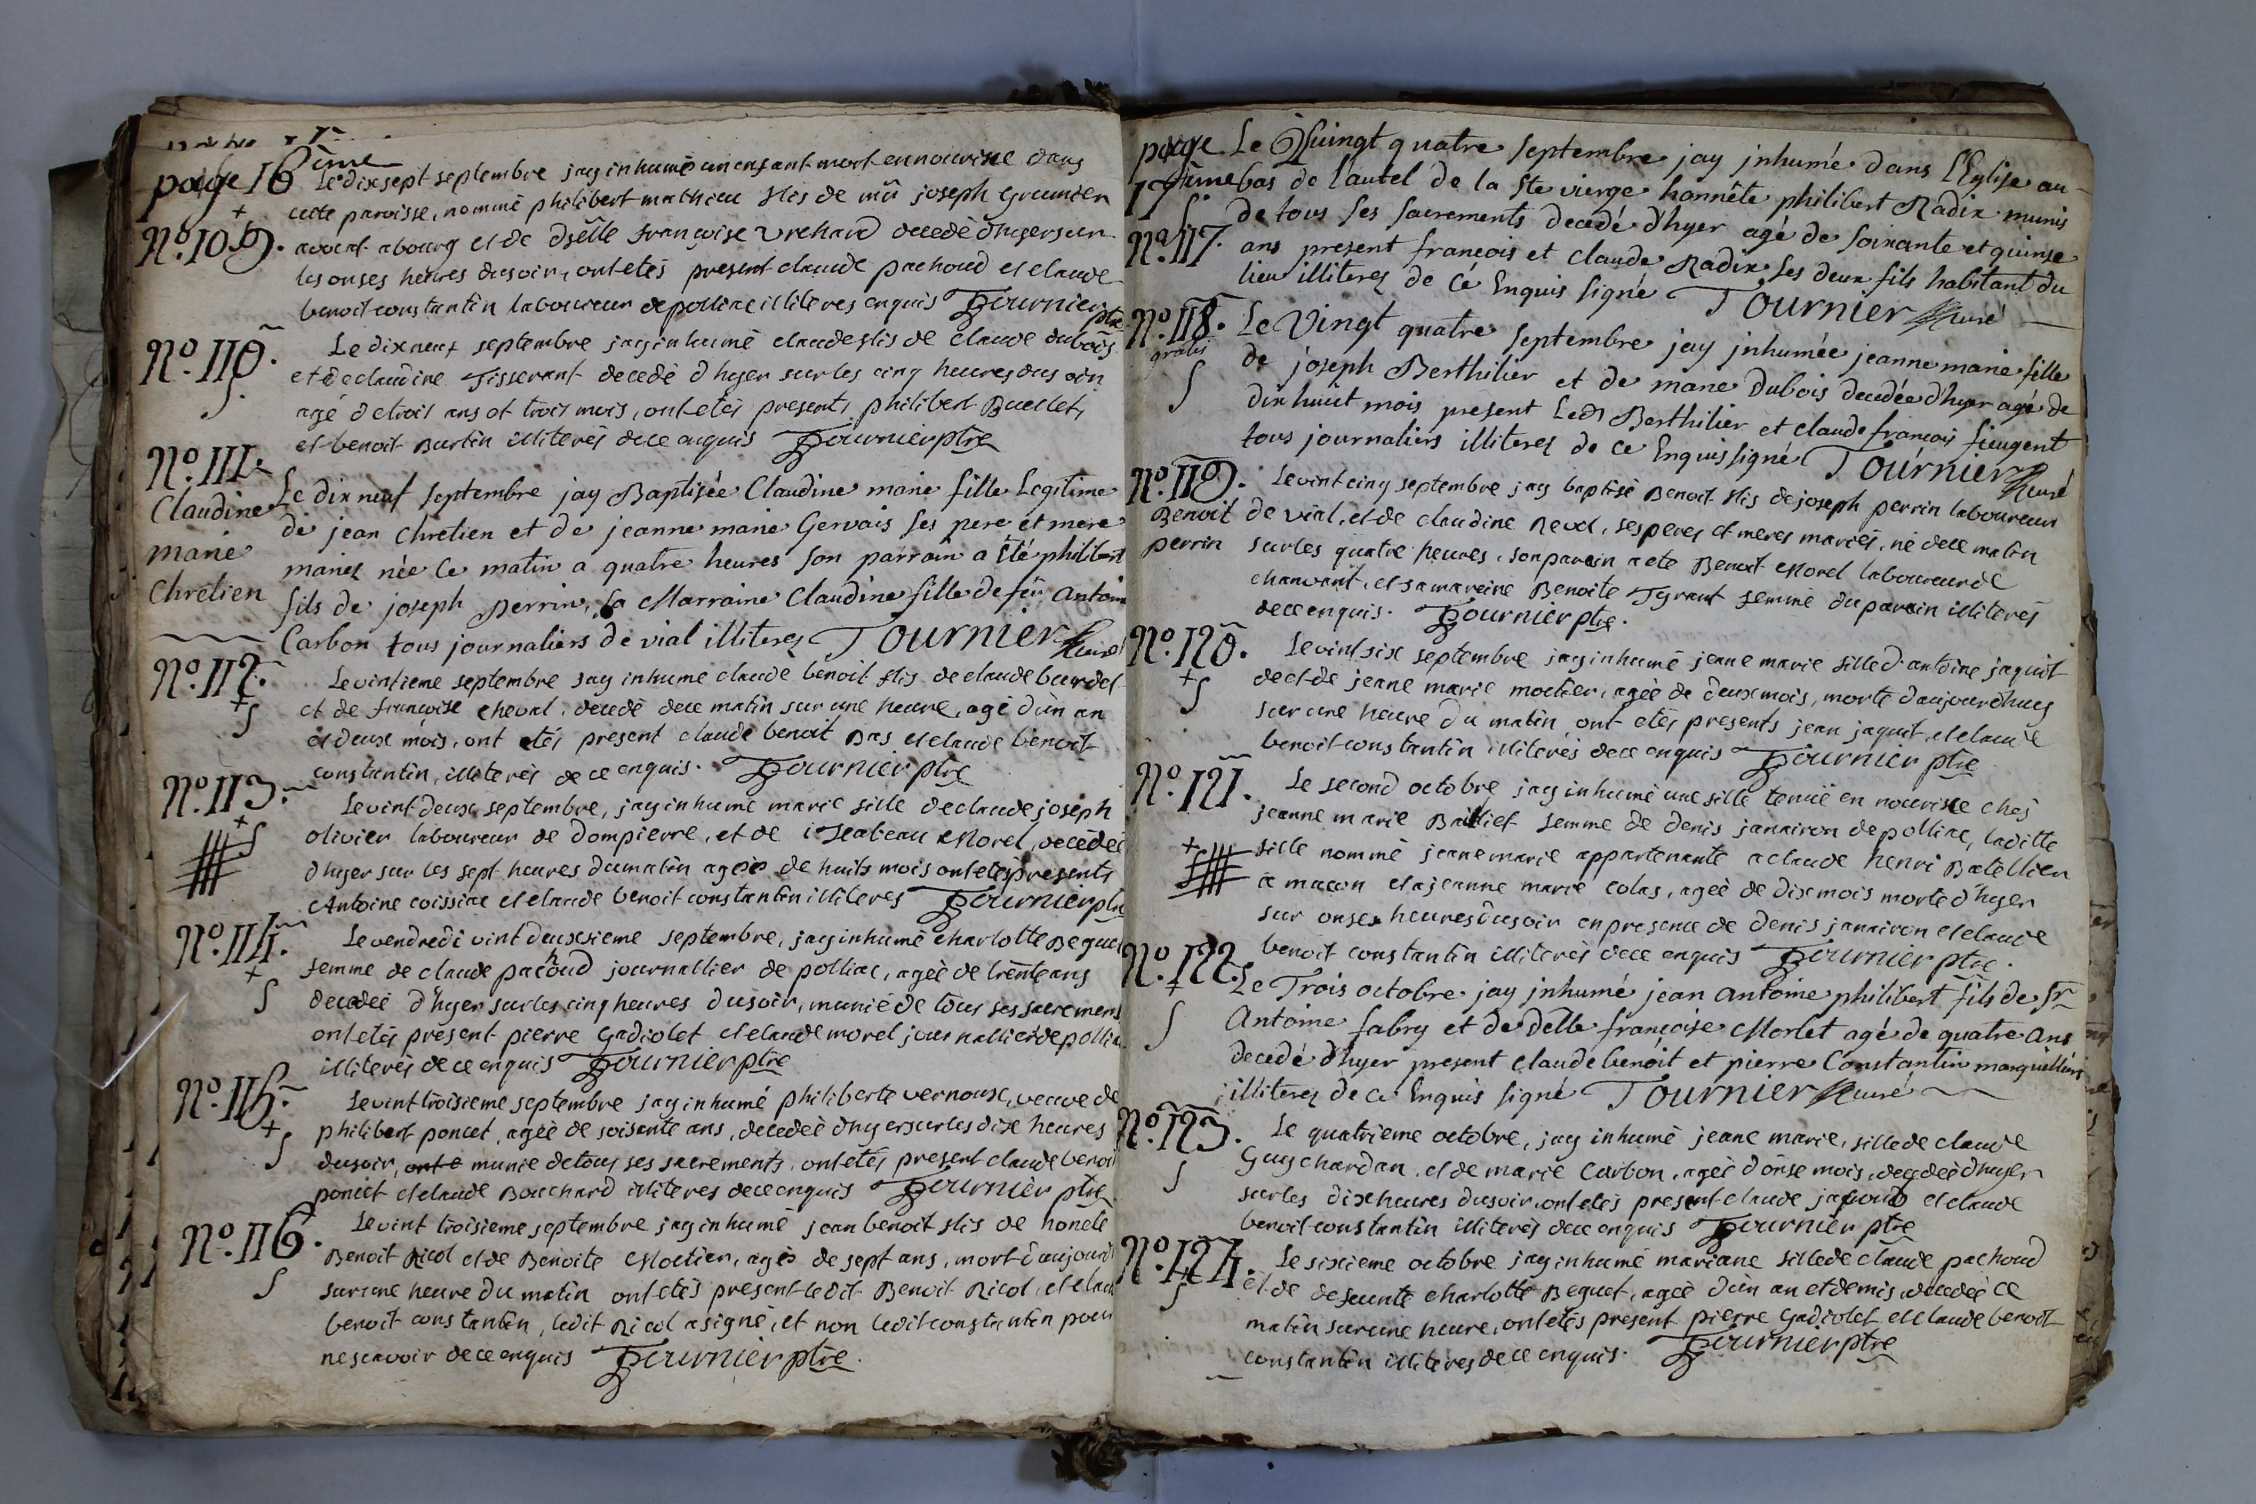 page 16 ème
Le dixsept septembre jay inhumé un enfant mort en nourisse dans
cette paroisse, nommé philibert mathieu fils de mr joseph Grumier
N.o 109.
avocat abourg et de dselle françoise Vrehard decedè d'hyer sur
les onses heures du soir, ont etés present claude pachoud et claude
benoit constantin laboureur de polliac illiteres enquis Tournier ptre
N.o 110.
Le dixneuf septembre jay inhumé claude fils de claude dubois
et de claudine Tisserant decedè d'hyer sur les cinq heures du soir
agé de trois ans et trois mois, ont etés presents philibert Buellet,
et benoit Burtin illiterés de ce enquis Tournier ptre
N.o 111.
Claudine
marie
Chretien
Le dix neuf septembre jay Baptisée Claudine marie fille Legitime
de jean Chretien et de jeanne marie Gervais ses pere et mere
mariez née Ce matin a quatre heures Son parrain a Eté philibert
fils de joseph Perrin, Sa Marraine Claudine fille de feu Antoine
Carbon tous journaliers de vial illiterez Tournier Curé
N.o 112.
Le vintieme septembre jay inhumé claude benoit fils de claude bourdel
et de françoise cheval, decedè de ce matin sur une heure, agé d'un an
et deux mois, ont etés present claude benoit Bas et claude benoit
constantin, illiterés de ce enquis. Tournier ptre
N.o 113.
Le vint deux septembre, jay inhumé marie fille de claude joseph
olivier laboureur de dompierre, et de iseabeau Morel, decedée
d'hyer sur les sept heures du matin ageé de huits mois ont etés presents
Antoine coissiac et claude benoit constantin illiteres Tournier ptre
N.o 114.
Le vendredi vint deuxsieme septembre, jay inhumé charlotte Beguet
femme de claude pachoud journallier de polliac, ageè de trente ans
decedeé d'hyer sur les cinq heures du soir, munié de tous ses sacremens
ont etés present pierre Gadiolet et claude morel journallier de polliac
illiterés de ce enquis Tournier ptre
N.o 115.
Le vint troisieme septembre jay inhumé philiberte vernoux, veuve de
philibert poncet, ageè de soisante ans, decedeè d'hyer sur les dix heures
du soir, ont e munie de tous ses sacrements, ont etés present claude benoit
poncet et claude Bouchard illiteres de ce enquis Tournier ptre
N.o 116.
Le vint troisieme septembre jay inhumé jean benoit fils de honete
Benoit Nicol et de Benoite Moctier, agé de sept ans, mort d'aujourd
sur une heure du matin ont etés present ledit Benoit Nicol, et claude
benoit constantin, ledit Nicol a signé, et non ledit constantin pour
ne scavoir de ce enquis Tournier ptre.
page
17 ème
N.o 117.
Le Vuingt quatre septembre jay jnhumé dans l'Eglise au
bas de l'autel de la Ste vierge honnête philibert Nadix munis
de tous ses sacrements decedé d'hyer agé de soixante et quinse
ans present francois et claude Nadix ses deux fils habitant du
lieu illiterez de Cé Enquis signé Tournier Curé
N.o 118.
gratis
Le Vingt quatre septembre jay jnhumée jeanne marie fille
de joseph Berthilier et de marie Dubois decedée d'hyer agé de
dix huit mois present Led Berthilier et claude francois fieugent
tous journaliers illiterez de ce Enquis signé Tournier Curé
N.o 119.
Benoit
perrin
Le vint cinq septembre jay baptisé Benoit fils de joseph perrin laboureur
de vial, et de claudine Revol, ses peres et meres mariés, né de ce matin
sur les quatre heures, son parain a eté Benoit Morel laboureur de
chanvant, et sa mareine Benoite Tyrant femme du parain illiterés
de ce enquis. Tournier ptre.
N.o 120.
Le vint six septembre jay inhumé jeane marie fille d. antoine jaquit
de et de jeane marie moctier, ageè de deux mois, morte d'aujourd'huy
sur une heure du matin, ont etés presents jean jaquit, et claude
benoit constantin illiterés de ce enquis Tournier ptre
N.o 121.
Le second octobre jay inhumé une fille tenüe en nourisse chés
jeanne marie Baillief femme de denis janairon de polliac, laditte
fille nommé jeane marie appartenante a claude henri Batellier
a macon et a jeanne marie colas, ageé de dix mois morte d'hyer
sur onses heures du soir en presence de denis janairon et claude
benoit constantin illiterés de ce enquis Tournier ptre.
N.o 122.
Le Trois octobre jay jnhumé jean Antoine philibert fils de Sr
Antoine fabry et de delle françoise Morlet agé de quatre ans
decedé d'hyer present Claude benoit et pierre Constantin marguilliers
illiterez de ce Enquis signé Tournier Curé
N.o 123.
Le quatrieme octobre, jay inhumé jeane marie, fille de claude
Guychardan, et de marie Carbon, ageè d'onse mois, decedeè d'hyer
sur les dix heures du soir, ont etés present claude et claude
benoit constantin illiterés de ce enquis Tournier ptre
N.o 124.
Le sixieme octobre jay inhumé mariane fille de claude pachoud
et de defeunte charlotte Beguet, ageè d'un an et demis, decedeè ce
matin sur une heure, ont etés present pierre Gadiolet et claude benoit
constantin illiteres de ce enquis. Tournier ptre